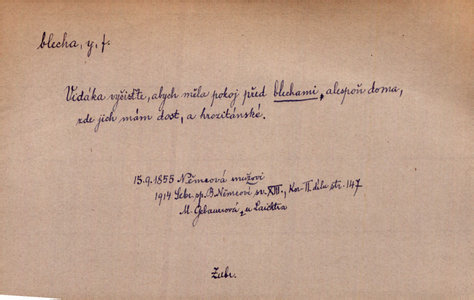 blecha, y, f.
Vidáka vyčisťte, abych měla pokoj před blechami, alespoň doma,
zde jich mám dost, a hrozitánské.
13.9.1855 Němcová mužovi
1914 Sebr. sp. B. Němcové sv. XIII., Kor. II. dílu str. 147
M. Gebauerová, u Laichtra
Zubr.